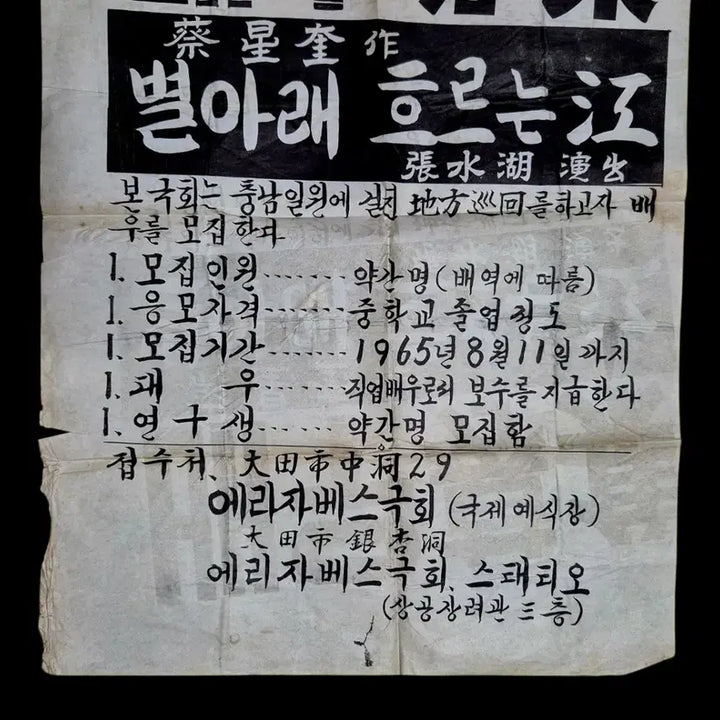 蔡星奎 作
별아래 흐르는 江
張水湖 演出
본 국회는 충남일원에 실전 地方巡回를하고자 배
우를 모집한다
1. 모집인원....... 약간명(배역에 따름)
1. 응모자격....... 중학교 졸업정도
1. 모집기간....... 1965년 8월 11일 까지
1. 대 우....... 직업배우로서 보수를 지급한다
1. 연구생...... 약간명 모집함
접수처、大田市中洞29
에리자베스극회 (국제예식장)
大田市銀杏洞
에리자베스극회、스태티오
(상공장려관 三층)